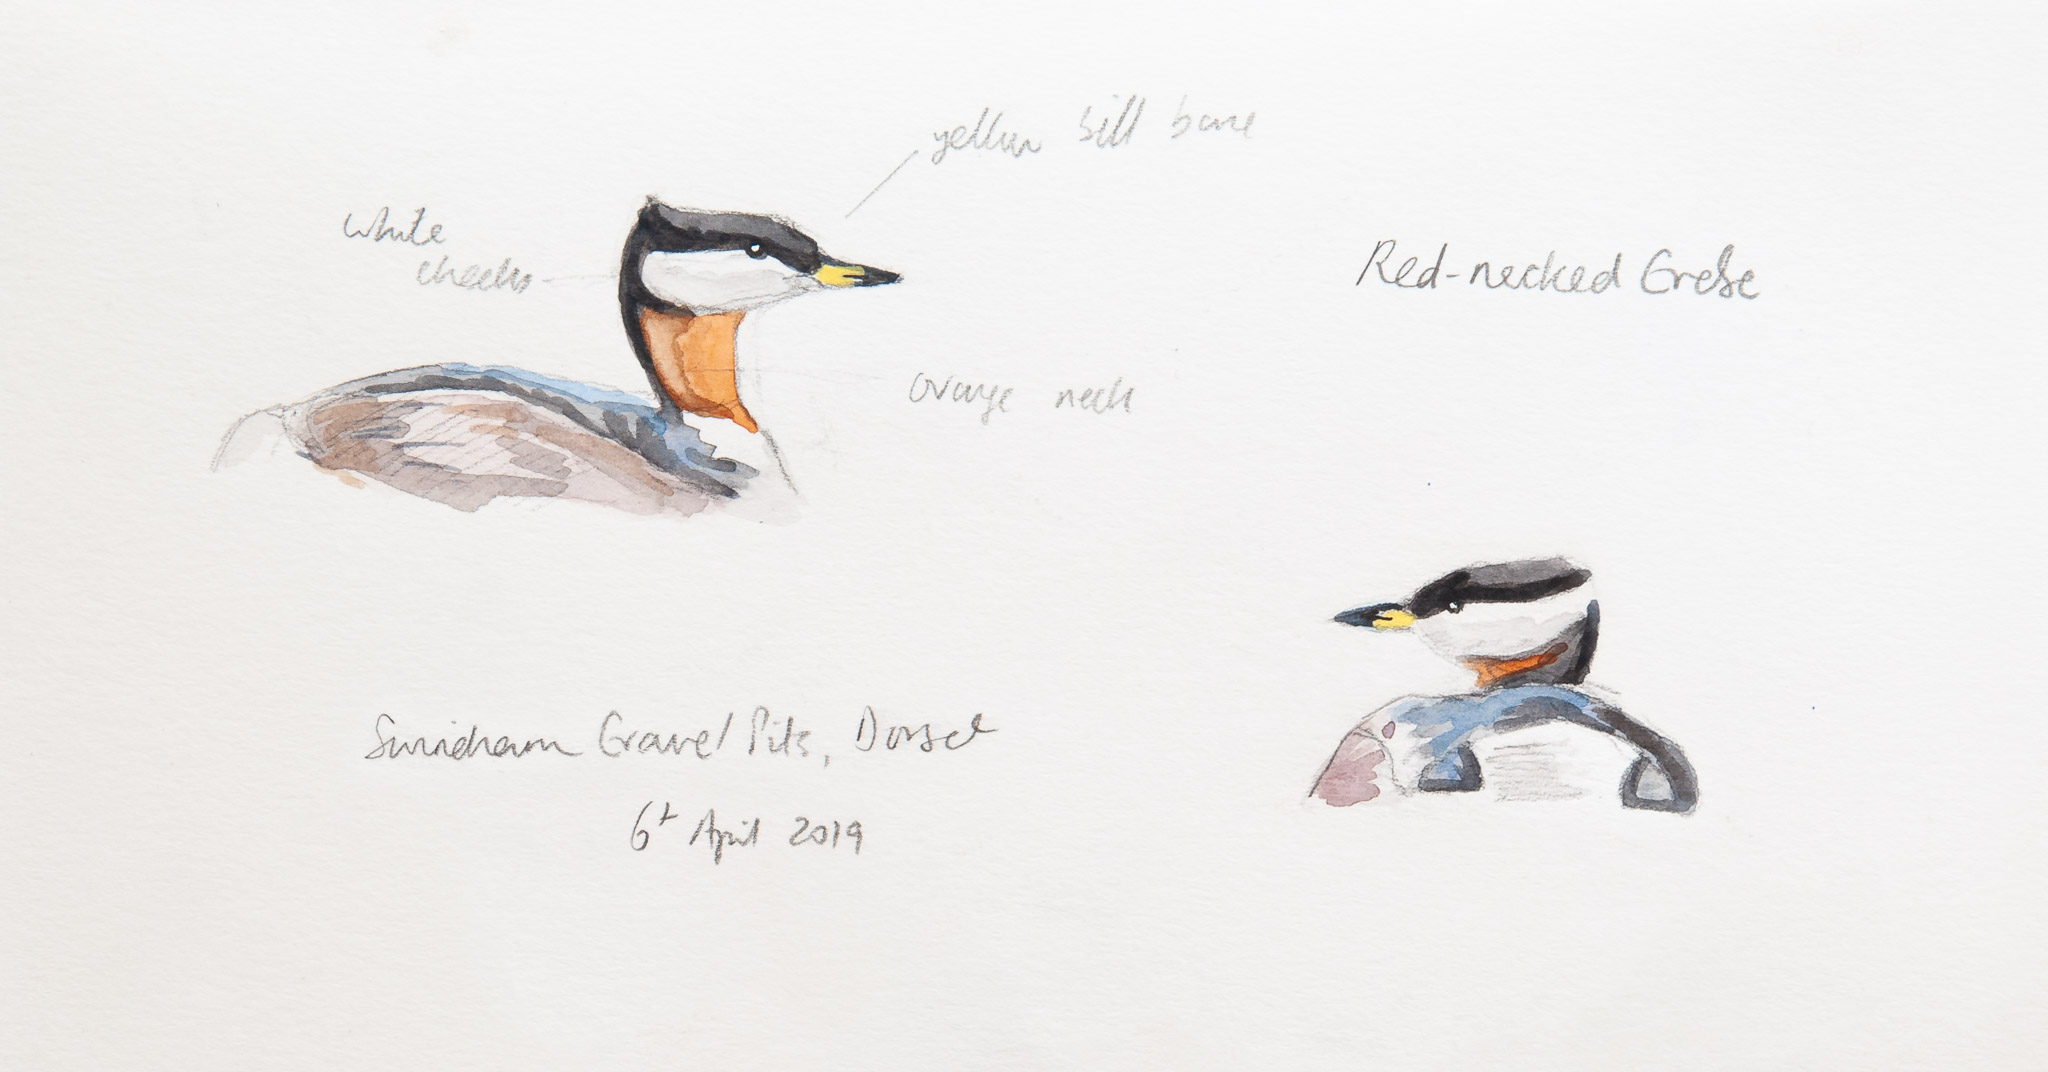 yellow bill base
white
cheeks
Red-necked Grebe
orange neck
Gravel Pits, Dorset
6th April 2019